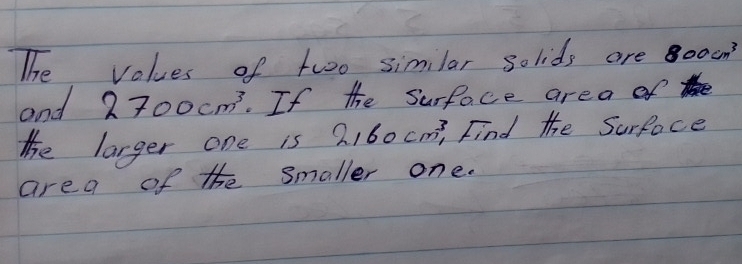 The values of two similar solids are 800cm³
and 2700cm³. If the surface area of the
the larger one is 2160cm³, Find the Surface
area of the smaller one.